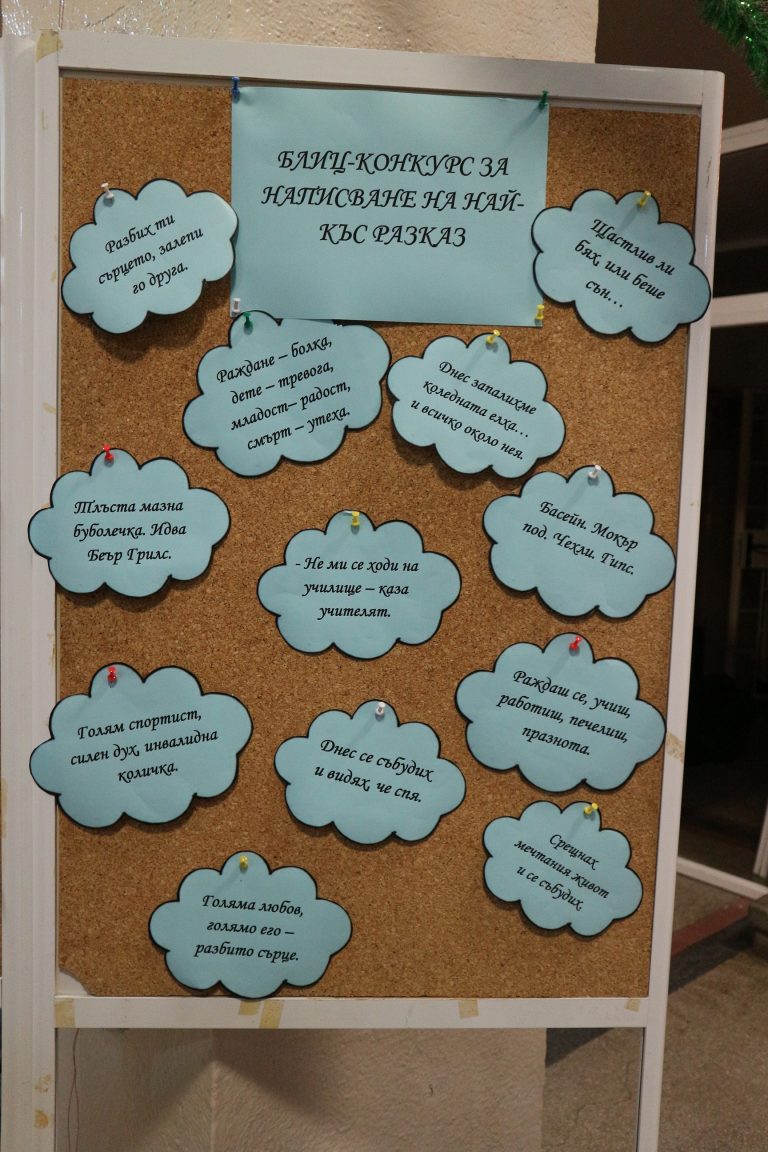 БЛИЦ-КОНКУРС ЗА
НАПИСВАНЕ НА НАЙ-
КЪС РАЗКАЗ
Разбих ти
сърцето, залепи
го друга.
Щастлив ли
бях, или беше
сън...
Раждане – болка,
дете – тревога,
младост– радост,
смърт – утеха.
Днес запалихме
коледната елха...
и всичко около нея.
Тлъста мазна
буболечка. Идва
Беър Грилс.
- Не ми се ходи на
училище – каза
учителят.
Басейн. Мокър
под. Чехли. Гипс.
Голям спортист,
силен дух, инвалидна
количка.
Днес се събудих
и видях, че спя.
Раждаш се, учиш,
работиш, печелиш,
празнота.
Голяма любов,
голямо его –
разбито сърце.
Срещнах
мечтания живот
и се събудих.